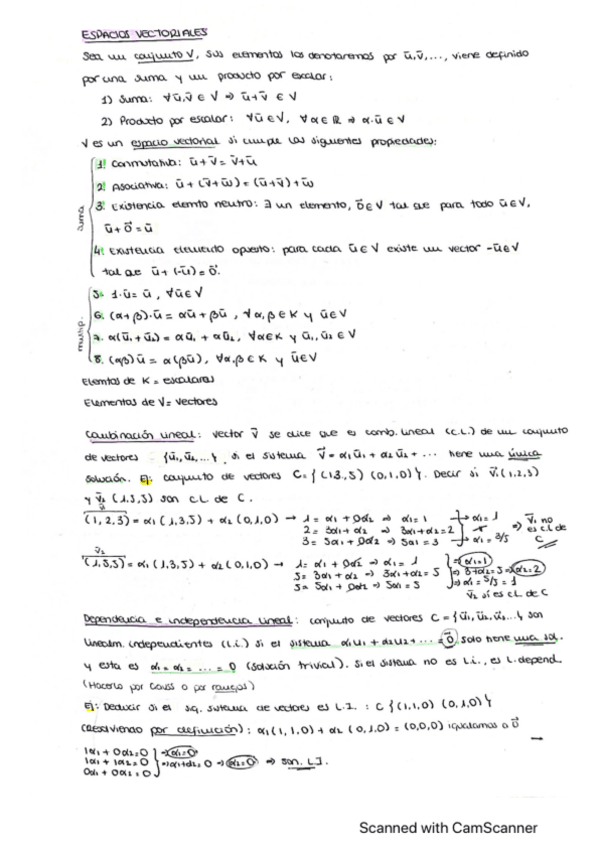 ESPACIOS VECTORIALES
Sea un conjunto V, sus elementos los denotaremos por ū, v̄, ..., viene definido
por una suma y un producto por escalar:
1) Suma: ∀ū,v̄ ∈ V ⇒ ū+v̄ ∈ V
2) Producto por escalar: ∀ū∈V, ∀α∈ℝ ⇒ α·ū∈V
V es un espacio vectorial si cumple las siguientes propiedades:
suma
1. Conmutativa: ū+v̄ = v̄+ū
2. Asociativa: ū + (v̄+w̄) = (ū+v̄)+w̄
3. Existencia elemto neutro: ∃ un elemento, 0⃗∈V tal que para todo ū∈V,
ū+0⃗=ū
4. Existencia elemento opuesto: para cada ū∈V existe un vector -ū∈V
tal que ū+(-ū)=0⃗.
multip.
5. 1·ū=ū, ∀ū∈V
6. (α+β)·ū = αū+βū, ∀α,β∈K y ū∈V
7. α(ū₁+ū₂) = αū₁ + αū₂, ∀α∈K y ū₁,ū₂∈V
8. (αβ)ū = α(βū), ∀α,β∈K y ū∈V
Elemtos de K = escalares
Elementos de V = vectores
Combinación lineal: vector v̄ se dice que es comb. lineal (C.L.) de un conjunto
de vectores {ū₁,ū₂,...}, si el sistema v̄ = α₁ū₁ + α₂ū₂ + ... tiene una única
solución. Ej: conjunto de vectores C={(1,3,5) (0,1,0)}. Decir si v̄₁(1,2,3)
y v̄₂(1,5,5) son CL de C.
(1,2,3) = α₁(1,3,5) + α₂(0,1,0) → 1 = α₁ + 0α₂ ⇒ α₁=1
2 = 3α₁ + α₂ ⇒ 3α₁+α₂=2
3 = 5α₁ + 0α₂ ⇒ 5α₁=3
α₁=1
α₁=3/5
⇒ v̄₁ no
es CL de
C
v̄₂
(1,5,5) = α₁(1,3,5) + α₂(0,1,0) → 1 = α₁ + 0α₂ ⇒ α₁=1
5 = 3α₁ + α₂ ⇒ 3α₁+α₂=5
5 = 5α₁ + 0α₂ ⇒ 5α₁=5
⇒ α₁=1
⇒ 3+α₂=5 ⇒ α₂=2
⇒ α₁=5/5=1
v̄₂ sí es CL de C
Dependencia e independencia lineal: conjunto de vectores C={ū₁,ū₂,ū₃...} son
linealm. independientes (l.i.) si el sistema α₁u₁ + α₂u₂ + ... = 0⃗ solo tiene una sol.
y esta es α₁=α₂=...=0 (solución trivial). Si el sistema no es l.i., es l.depend.
(Hacerlo por Gauss o por rangos)
Ej: Deducir si el sig. sistema de vectores es L.I.: C{(1,1,0) (0,1,0)}
(resolviendo por definición): α₁(1,1,0) + α₂(0,1,0) = (0,0,0) igualamos a 0⃗
1α₁ + 0α₂=0
1α₁ + 1α₂=0
0α₁ + 0α₂=0
⇒ α₁=0
⇒ α₁+α₂=0 ⇒ α₂=0 ⇒ son L.I.
Scanned with CamScanner